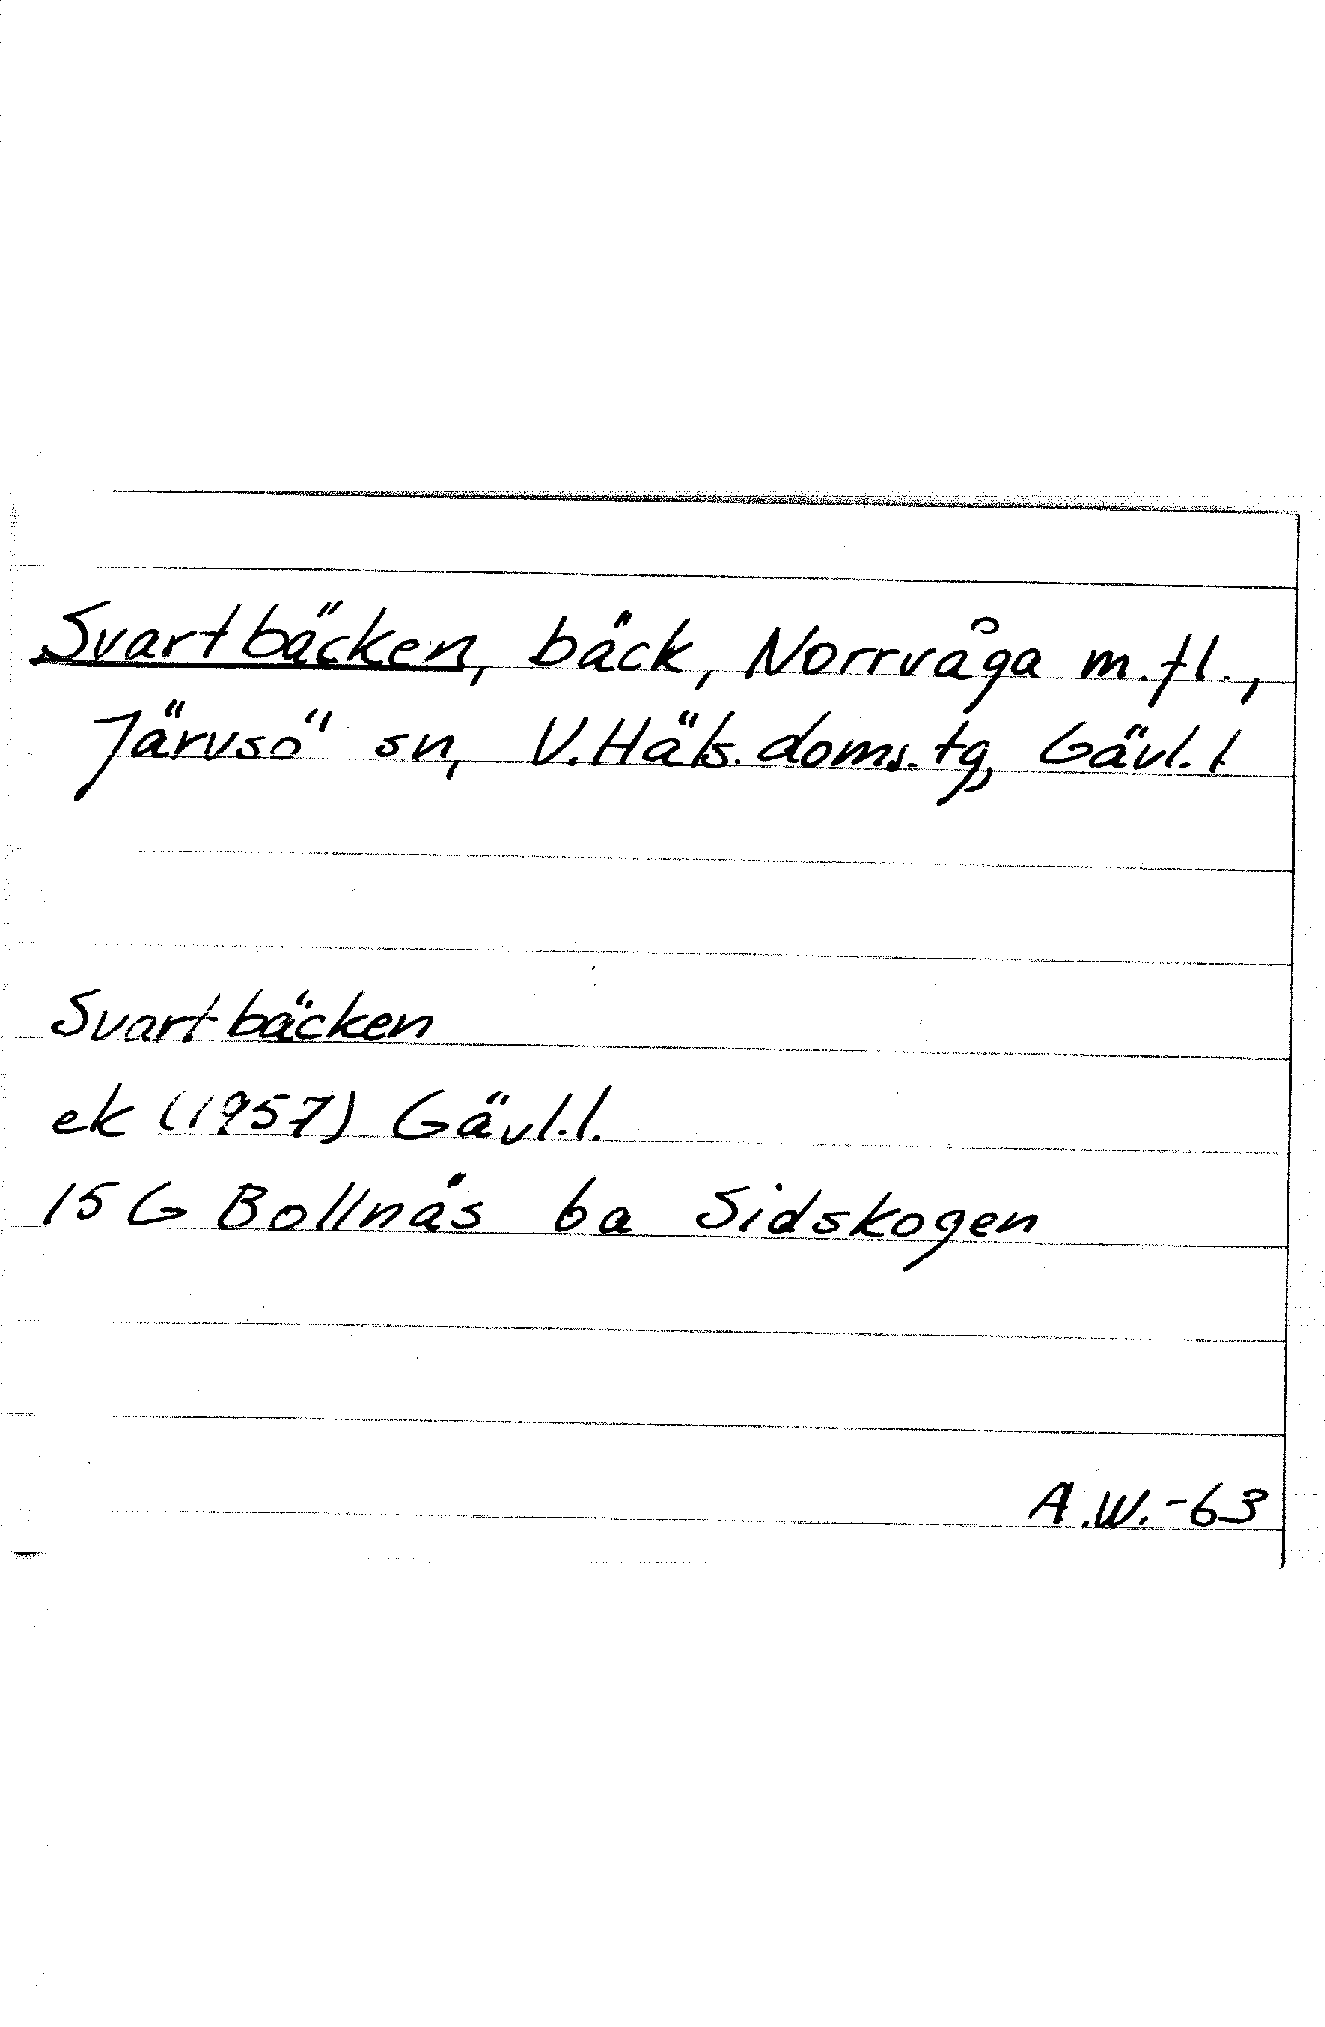 Svartbäcken, bäck, Norrvåga m.fl.,
Järvsö sn, V.Häls.doms.tg, Gävl.l.
Svartbäcken
ek (1957) Gävl.l.
15 G Bollnäs 6a Sidskogen
A.W.-63